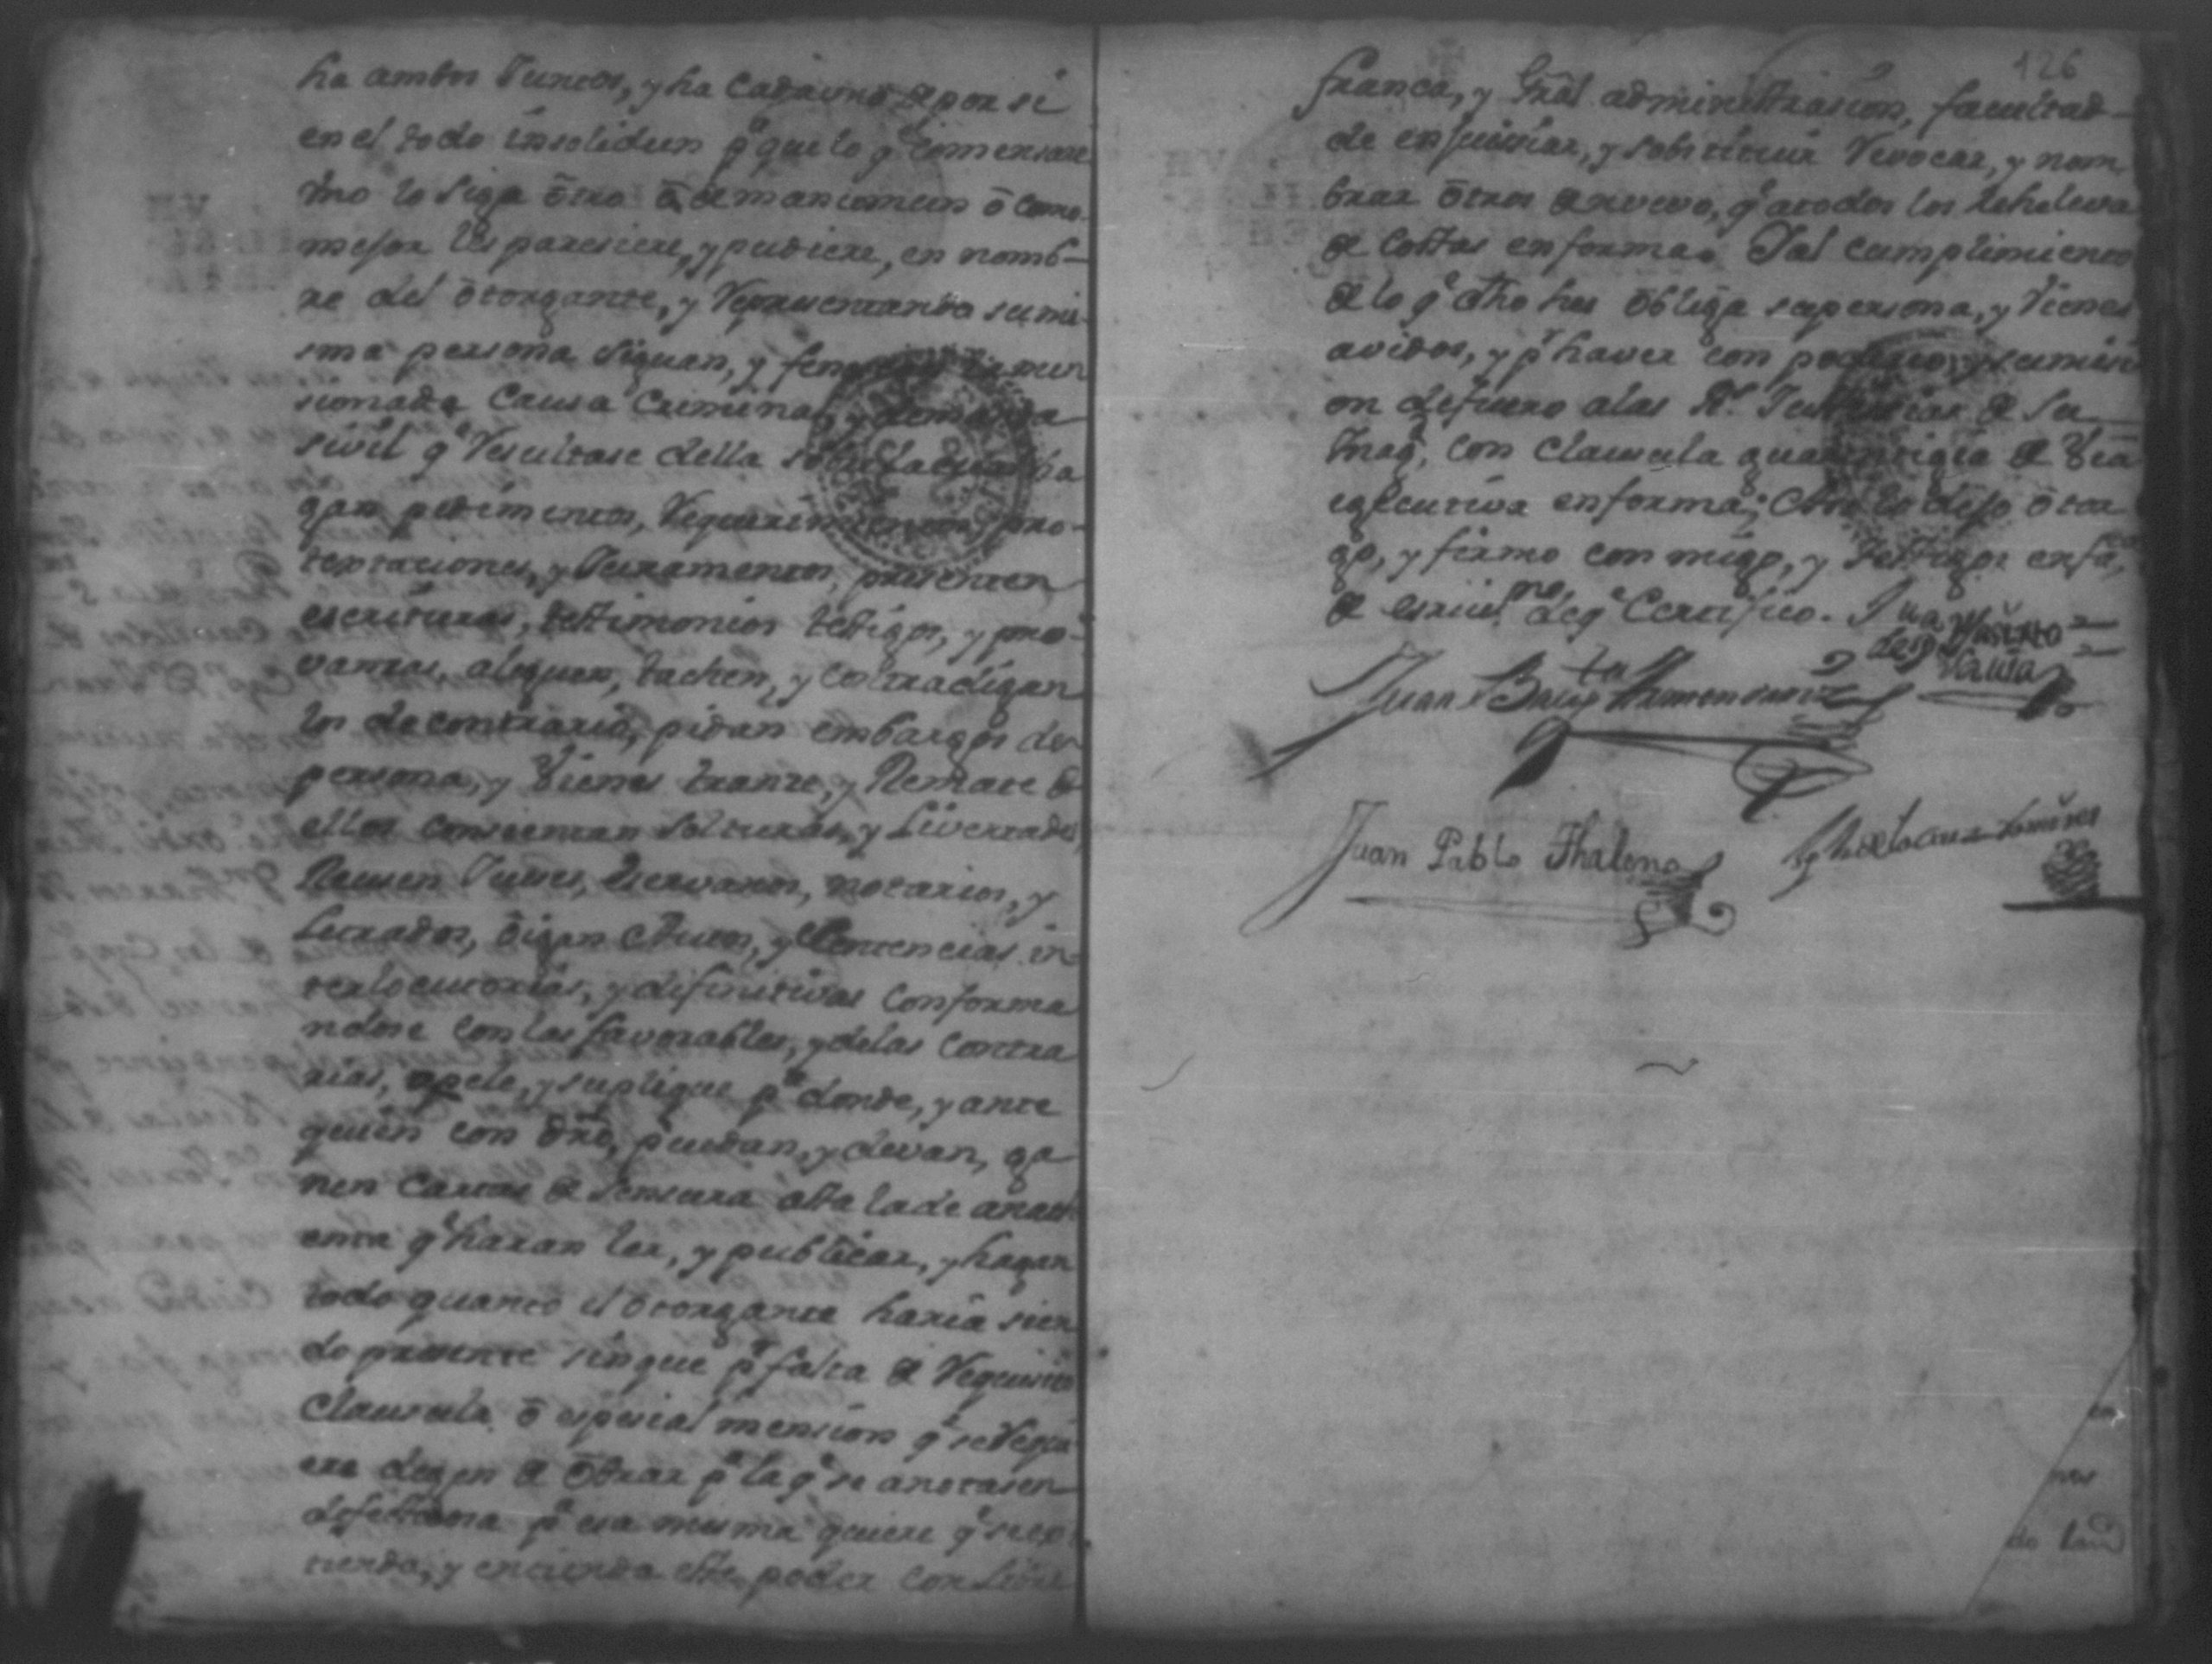 ha ambos Juntos, y ha cada uno de por si
en el todo insolidun pª que lo qᵉ comensare
Vno lo siga ôtro ô de mancomun ô como
mejor les paresiere, y pudiere, en nomb-
re del ôtorgante, y Representando su mi-
sma persona siguan, y la men
sionada Causa Criminal, y demanda
sivil qᵉ Resultase della ha
gan pedimentos, Requerimientos, pro-
textaciones, y Juramentos, presenten
escrituras, testimonios testigos, y pro-
vansas, aleguen, tachen, y contradigan
los de contrario, pidan embargos de
persona, y Vienes tranze, y Remate de
ellos consientan solturas, y Livertades,
Recusen Jueses, Escrvanos, notarios, y
Letrados, ôigan Autos, y Sentencias in-
terlocutorias, y difinitivas conforma
ndose con las favorables, y delas contra
rias, apele, y suplique pª donde, y ante
quien con dro, puedan, y devan, ga
nen cartas de sensura asta la de anate
ema qᵉ haran ler, y publicar, y hagan
todo quanto el ôtorgante haria sien
do presente sin que pʳ falta de Requisito
Clausula ô espesial mension qᵉ se Requi
era dejen de ôbrar pʳ la qᵉ se anotasen
pʳ esa misma quiere qᵉ se ex
tienda, y entienda este poder con Libre
126
franca, y Gral administrasion, facultad
de enjuiciar, y sobstituir Revocar, y nom
brar ôtros de nuevo, qᵉ a todos los Releleva
de costas en forma. Y al cumplimiento
de lo qᵉ dho hes ôbliga su persona, y Vienes
avidos, y pʳ haver con poderio, y sumisi
on de fuero a las Rˢ Justisias de Su
Mag, con clausula guarentigia de Via
egecutiva en forma; Asi lo dijo ôtor
go, y firmo con migo, y testigos enfa,
de escrivⁿᵒ, de qᵉ Certifico.
Juan Bauᵗᵃ
Juan Pablo Thalena